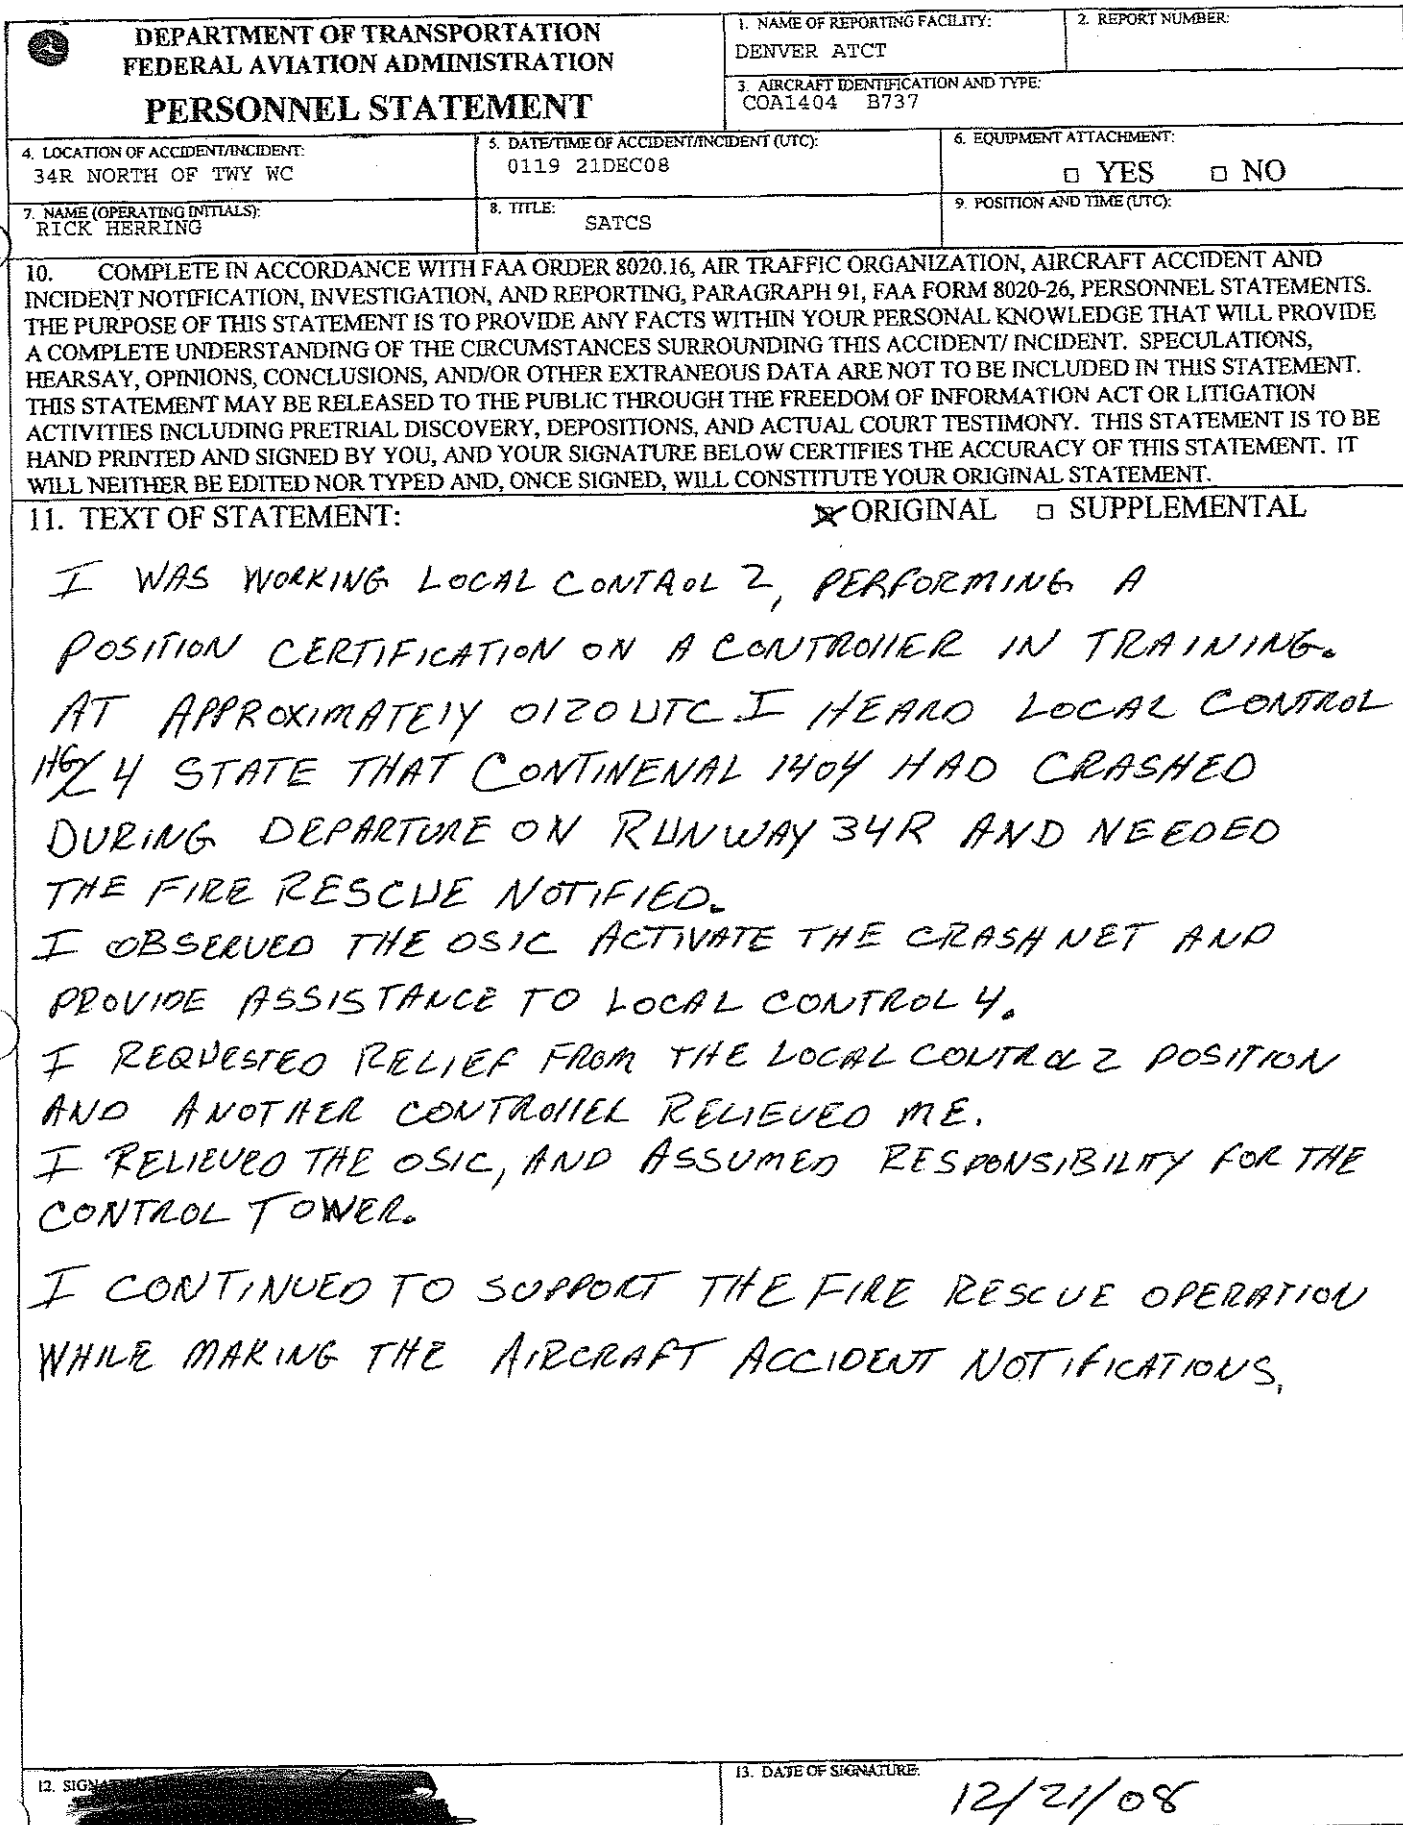 DEPARTMENT OF TRANSPORTATION
FEDERAL AVIATION ADMINISTRATION
PERSONNEL STATEMENT
1. NAME OF REPORTING FACILITY:
DENVER ATCT
2. REPORT NUMBER:
3. AIRCRAFT IDENTIFICATION AND TYPE:
COA1404 B737
4. LOCATION OF ACCIDENT/INCIDENT:
34R NORTH OF TWY WC
5. DATE/TIME OF ACCIDENT/INCIDENT (UTC):
0119 21DEC08
6. EQUIPMENT ATTACHMENT:
□ YES □ NO
7. NAME (OPERATING INITIALS):
RICK HERRING
8. TITLE:
SATCS
9. POSITION AND TIME (UTC):
10. COMPLETE IN ACCORDANCE WITH FAA ORDER 8020.16, AIR TRAFFIC ORGANIZATION, AIRCRAFT ACCIDENT AND
INCIDENT NOTIFICATION, INVESTIGATION, AND REPORTING, PARAGRAPH 91, FAA FORM 8020-26, PERSONNEL STATEMENTS.
THE PURPOSE OF THIS STATEMENT IS TO PROVIDE ANY FACTS WITHIN YOUR PERSONAL KNOWLEDGE THAT WILL PROVIDE
A COMPLETE UNDERSTANDING OF THE CIRCUMSTANCES SURROUNDING THIS ACCIDENT/ INCIDENT. SPECULATIONS,
HEARSAY, OPINIONS, CONCLUSIONS, AND/OR OTHER EXTRANEOUS DATA ARE NOT TO BE INCLUDED IN THIS STATEMENT.
THIS STATEMENT MAY BE RELEASED TO THE PUBLIC THROUGH THE FREEDOM OF INFORMATION ACT OR LITIGATION
ACTIVITIES INCLUDING PRETRIAL DISCOVERY, DEPOSITIONS, AND ACTUAL COURT TESTIMONY. THIS STATEMENT IS TO BE
HAND PRINTED AND SIGNED BY YOU, AND YOUR SIGNATURE BELOW CERTIFIES THE ACCURACY OF THIS STATEMENT. IT
WILL NEITHER BE EDITED NOR TYPED AND, ONCE SIGNED, WILL CONSTITUTE YOUR ORIGINAL STATEMENT.
11. TEXT OF STATEMENT: ☒ ORIGINAL □ SUPPLEMENTAL
I WAS WORKING LOCAL CONTROL 2, PERFORMING A
POSITION CERTIFICATION ON A CONTROLLER IN TRAINING.
AT APPROXIMATELY 0120 UTC I HEARD LOCAL CONTROL
4 STATE THAT CONTINENAL 1404 HAD CRASHED
DURING DEPARTURE ON RUNWAY 34R AND NEEDED
THE FIRE RESCUE NOTIFIED.
I OBSERVED THE OSIC ACTIVATE THE CRASH NET AND
PROVIDE ASSISTANCE TO LOCAL CONTROL 4.
I REQUESTED RELIEF FROM THE LOCAL CONTROL 2 POSITION
AND ANOTHER CONTROLLER RELIEVED ME.
I RELIEVED THE OSIC, AND ASSUMED RESPONSIBILITY FOR THE
CONTROL TOWER.
I CONTINUED TO SUPPORT THE FIRE RESCUE OPERATION
WHILE MAKING THE AIRCRAFT ACCIDENT NOTIFICATIONS.
12.
13. DATE OF SIGNATURE:
12/21/08